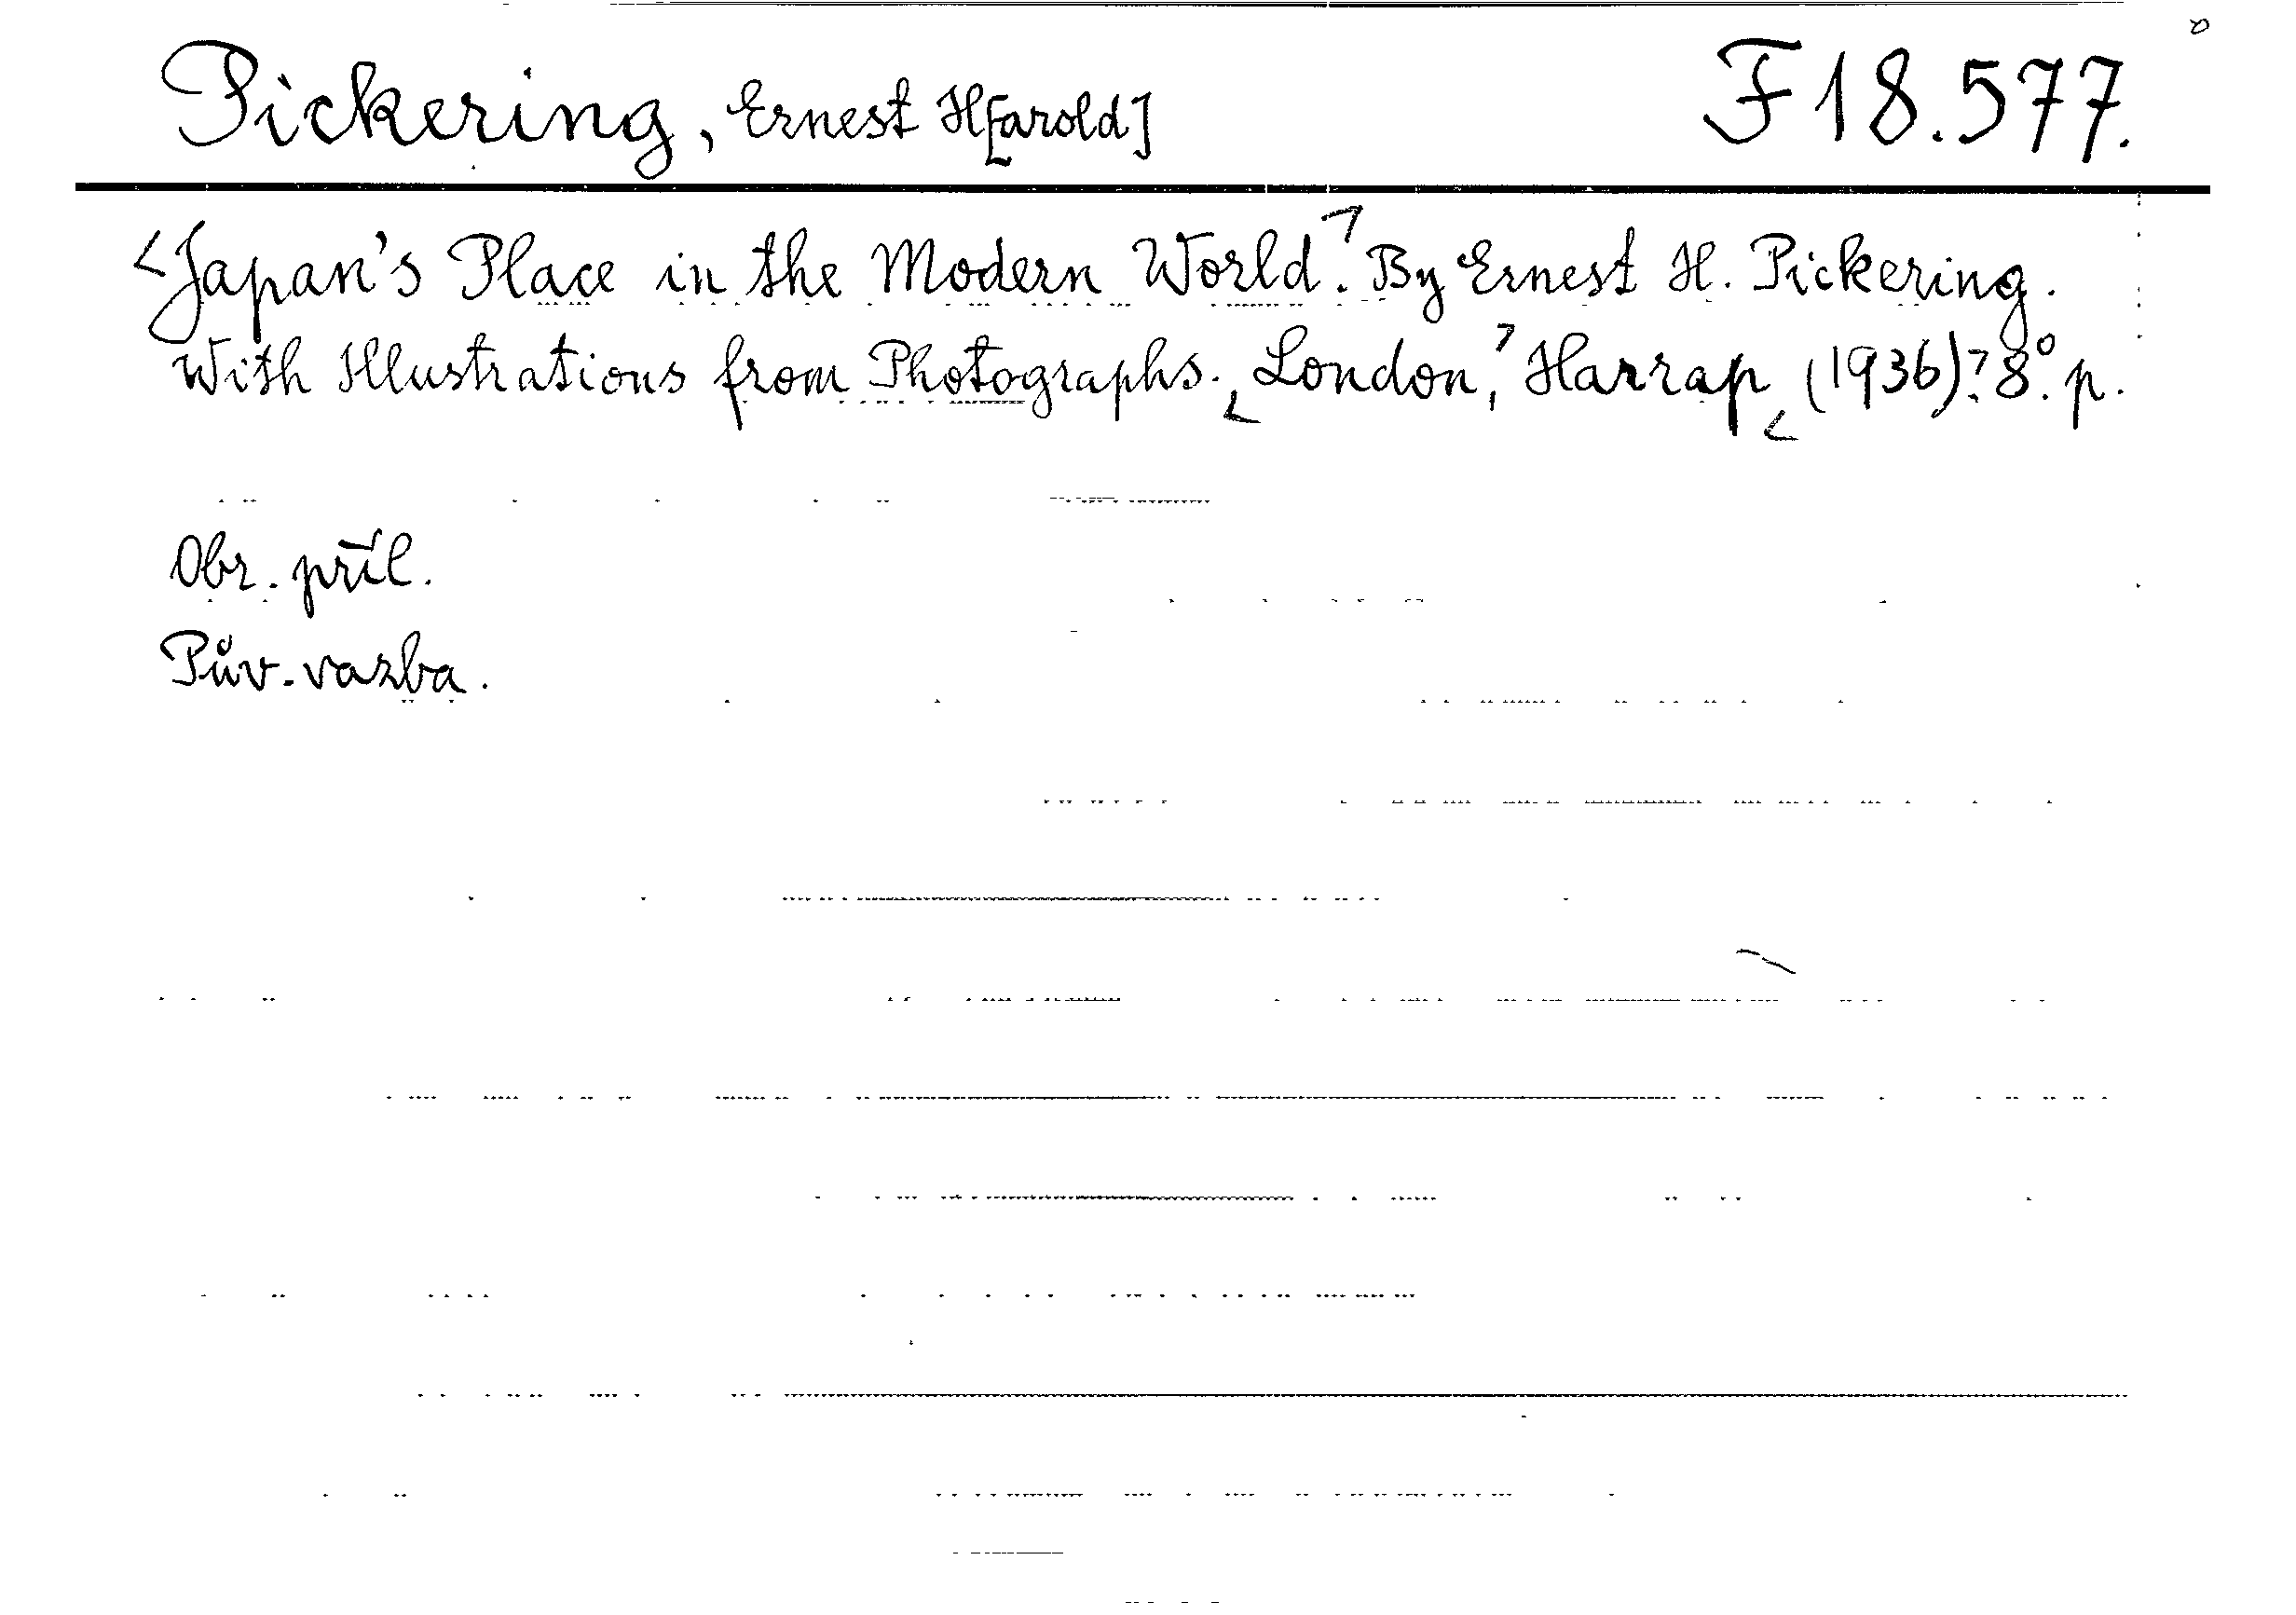 Pickering, Ernest H[arold] F 18.577.
<Japan's Place in the Modern World.> By Ernest H. Pickering.
With Illustrations from Photographs. <London,> Harrap <(1936).> 8°. p.
Obr. příl.
Pův. vazba.